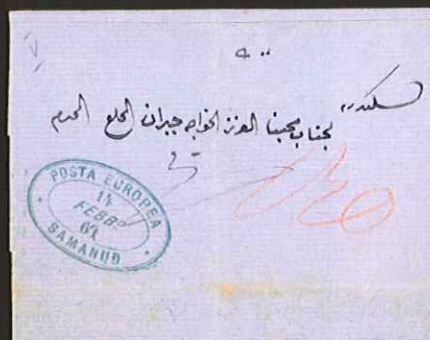 سكندريه
لجناب محبنا العزيز الخواجه جبران المحترم
POSTA EUROPEA
14
FEBB°
SAMANUD